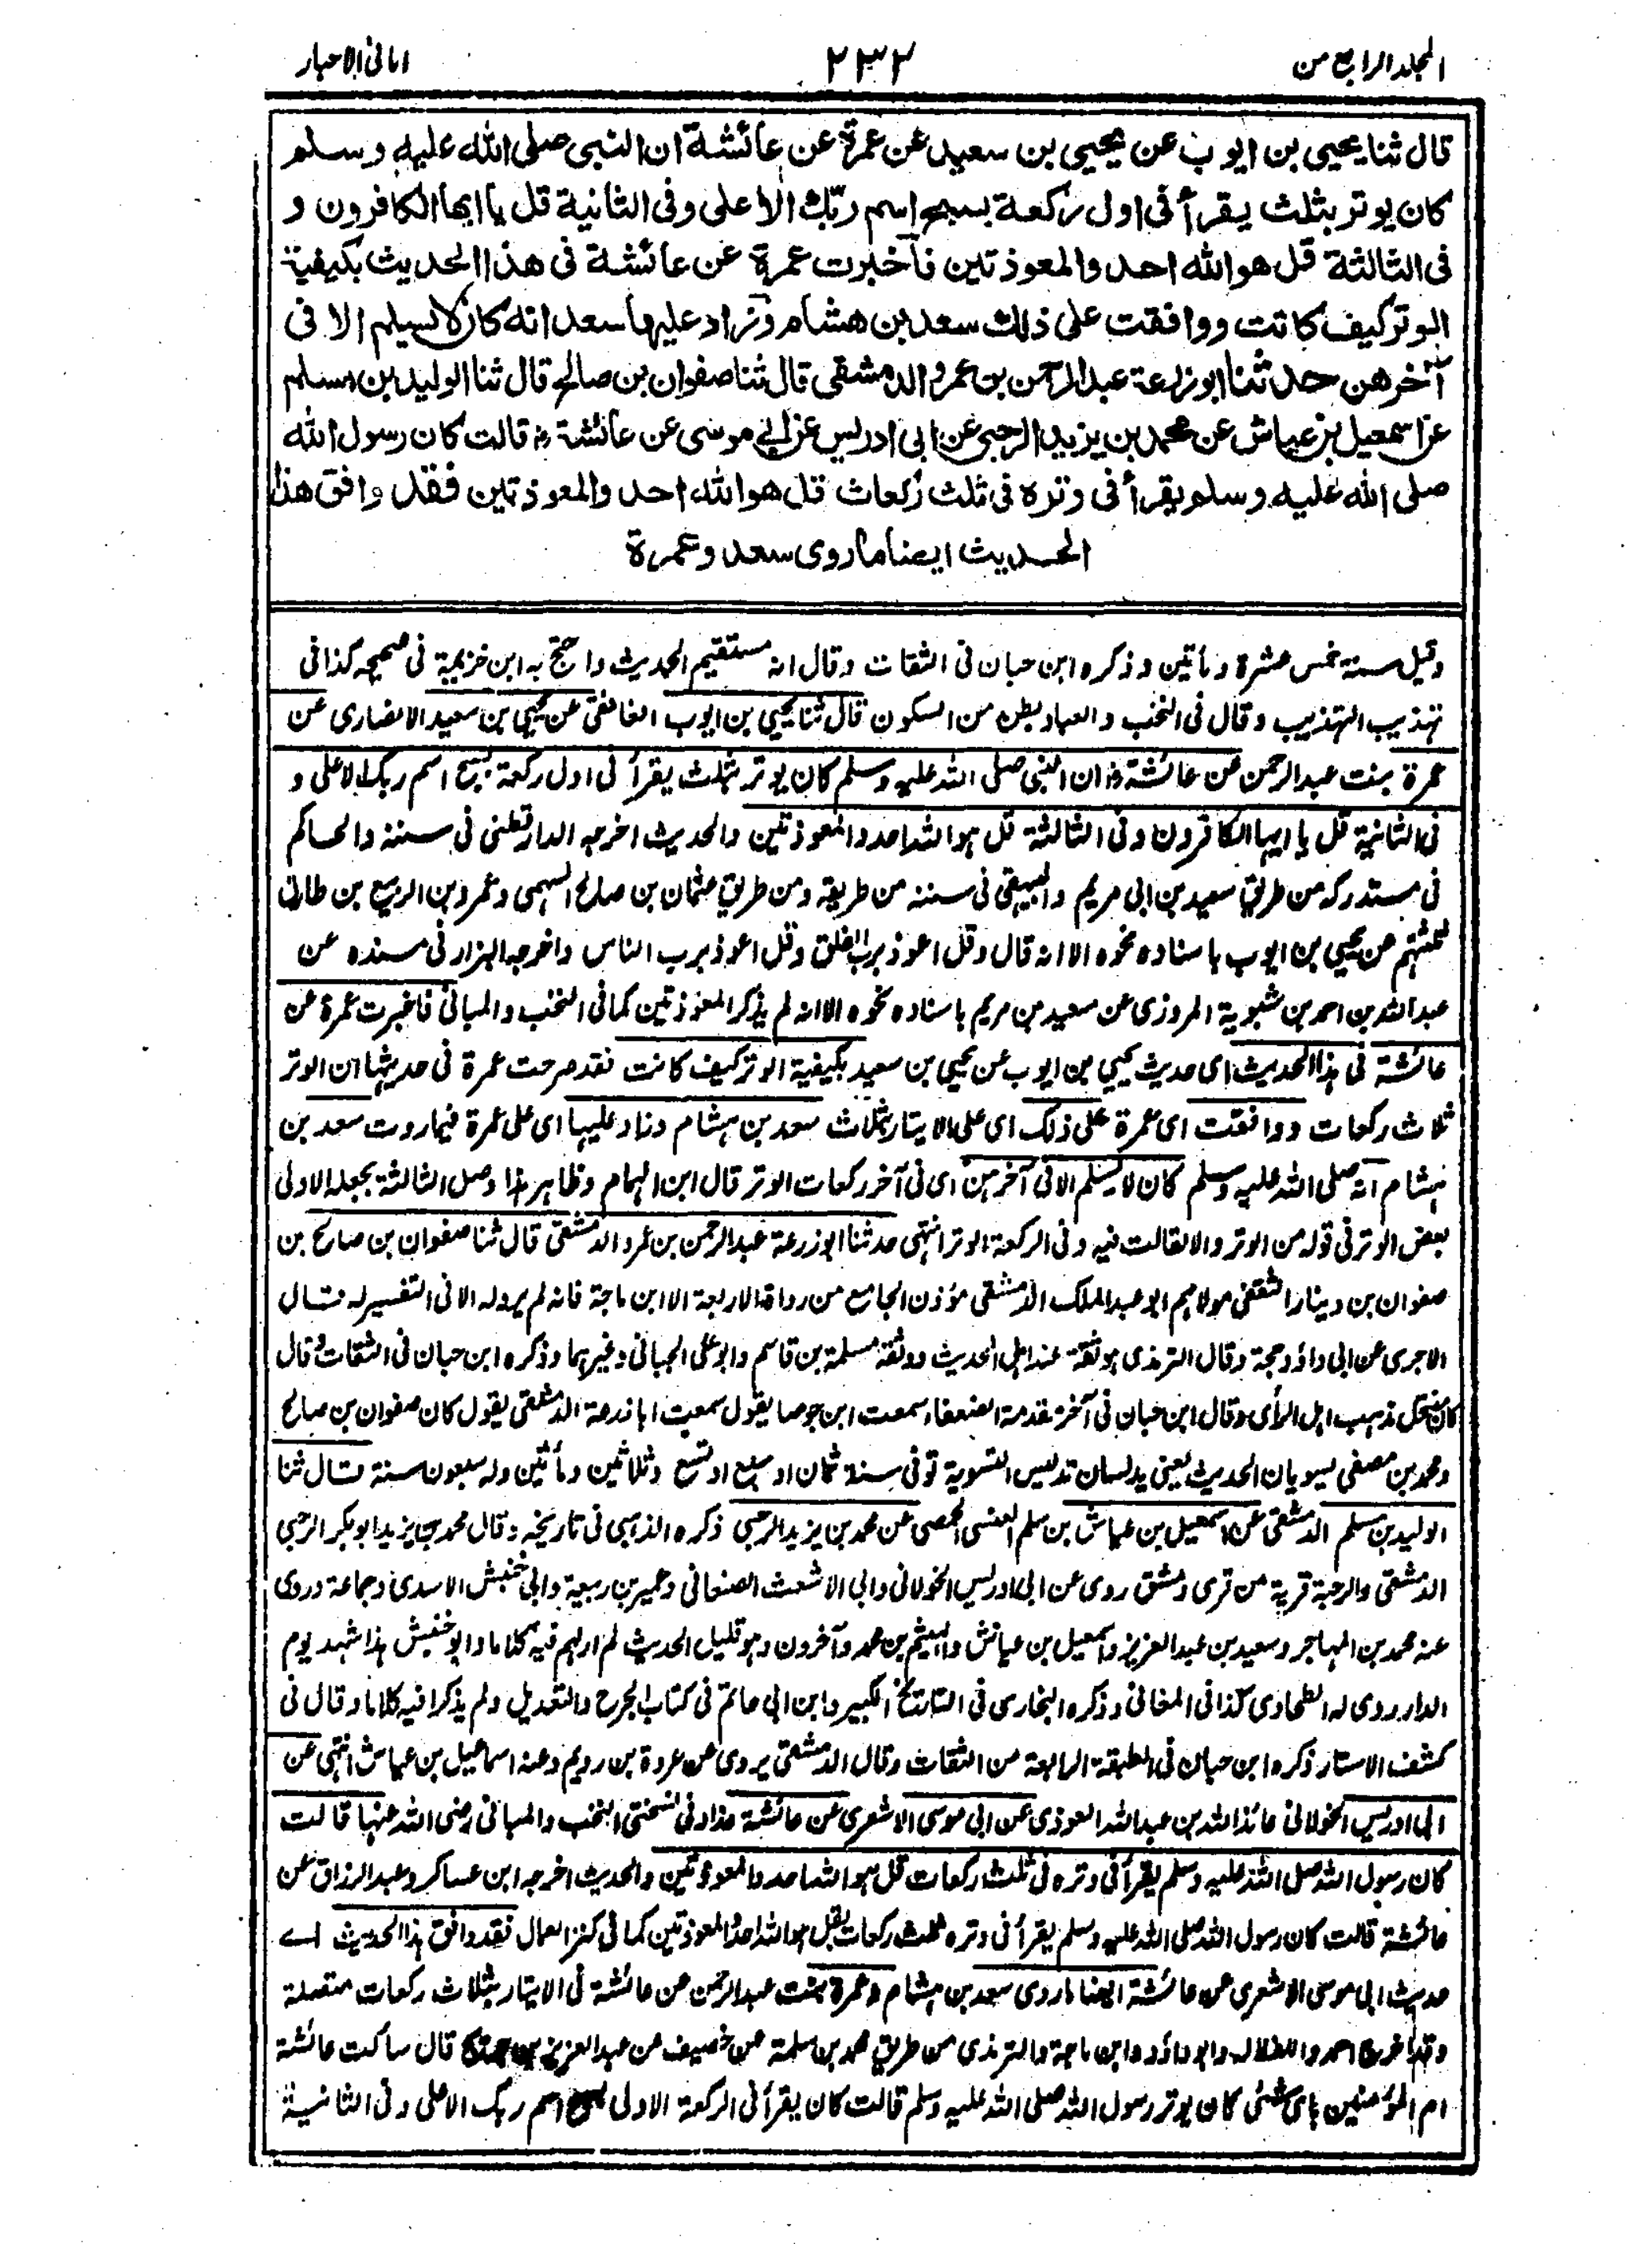 المجلد الرابع من
٢٣٢
امانى الاحبار
قال ثنا يحيى بن ايوب عن يحيى بن سعيد عن عمرة عن عائشة ان النبى صلى الله عليه وسلم
كان يوتر بثلث يقرأ فى اول ركعة بسبح اسم ربك الاعلى وفى الثانية قل يا ايها الكافرون و
فى الثالثة قل هو الله احد والمعوذتين فاخبرت عمرة عن عائشة فى هذا الحديث بكيفية
الوتر كيف كانت ووافقت على ذلك سعد بن هشام وزاد عليها سعد انه كان لا يسلم الا فى
آخرهن حدثنا ابو زرعة عبد الرحمن بن عمرو الدمشقى قال ثنا صفوان بن صالح قال ثنا الوليد بن مسلم
عن اسمعيل بن عياش عن محمد بن يزيد الرحبى عن ابى ادريس عن ابى موسى عن عائشة رض قالت كان رسول الله
صلى الله عليه وسلم يقرأ فى وتره فى ثلث ركعات قل هو الله احد والمعوذتين فقد وافق هذا
الحديث ايضا ما روى سعد وعمرة
وقيل سنة خمس عشرة ومأتين وذكره ابن حبان فى الثقات وقال انه مستقيم الحديث واحتج به ابن خزيمة فى صحيحه كذا فى
تهذيب التهذيب وقال فى النخب والعباد بطن من السكون قال ثنا يحيى بن ايوب الغافقى عن يحيى بن سعيد الانصارى عن
عمرة بنت عبد الرحمن عن عائشة رض ان النبى صلى الله عليه وسلم كان يوتر بثلث يقرأ فى اول ركعة بسبح اسم ربك الاعلى و
فى الثانية قل يا ايها الكافرون وفى الثالثة قل هو الله احد والمعوذتين والحديث اخرجه الدارقطنى فى سننه والحاكم
فى مستدركه من طريق سعيد بن ابى مريم والبيهقى فى سننه من طريقه ومن طريق عثمان بن صالح السهمى وعمرو بن الربيع بن طارق
ثلثتهم عن يحيى بن ايوب باسناده نحوه الا انه قال وقل اعوذ برب الفلق وقل اعوذ برب الناس واخرجه البزار فى مسنده عن
عبد الله بن احمد بن شبوية المروزى عن سعيد بن مريم باسناده نحوه الا انه لم يذكر المعوذتين كما فى النخب والمبانى فاخبرت عمرة عن
عائشة فى هذا الحديث اى حديث يحيى بن ايوب عن يحيى بن سعيد بكيفية الوتر كيف كانت فقد صرحت عمرة فى حديثها ان الوتر
ثلاث ركعات ووافقت اى عمرة على ذلك اى على الايتار بثلاث سعد بن هشام وزاد عليها اى على عمرة فيما روت سعد بن
هشام انه صلى الله عليه وسلم كان لا يسلم الا فى آخرهن اى فى آخر ركعات الوتر قال ابن الهمام وظاهر هذا وصل الثالثة بجعله الاولى
بعض الوتر فى قوله من الوتر والا لقالت فيه وفى الركعة الوتر انتهى حدثنا ابو زرعة عبد الرحمن بن عمرو الدمشقى قال ثنا صفوان بن صالح بن
صفوان بن دينار الثقفى مولاهم ابو عبد الملك الدمشقى مؤذن الجامع من رواة الاربعة الا ابن ماجة فانه لم يرو له الا فى التفسير له قال
الاجرى عن ابى داؤد حجة وقال الترمذى هو ثقة عند اهل الحديث ووثقه مسلمة بن قاسم وابو على الجيانى وغيرهما وذكره ابن حبان فى الثقات وقال
كان ينتحل مذهب اهل الرأى وقال ابن حبان فى آخر مقدمة الضعفاء سمعت ابن جوصا يقول سمعت ابا زرعة الدمشقى يقول كان صفوان بن صالح
ومحمد بن مصفى يسويان الحديث يعنى يدلسان تدليس التسوية توفى سنة ثمان او سبع او تسع وثلاثين ومأتين وله سبعون سنة قال ثنا
الوليد بن مسلم الدمشقى عن اسمعيل بن عياش بن سلم العنسى الحمصى عن محمد بن يزيد الرحبى ذكره الذهبى فى تاريخه وقال محمد بن يزيد ابو بكر الرحبى
الدمشقى والرحبة قرية من قرى دمشق روى عن ابى ادريس الخولانى وابى الاشعث الصنعانى وعمير بن ربيعة وابى خنبش الاسدى وجماعة وروى
عنه محمد بن المهاجر وسعيد بن عبد العزيز واسمعيل بن عياش والهيثم بن محمد وآخرون وهو قليل الحديث لم ار لهم فيه كلاما وابو خنبش هذا شهد يوم
الدار روى له الطحاوى كذا فى المغانى وذكره البخارى فى التاريخ الكبير وابن ابى حاتم فى كتاب الجرح والتعديل ولم يذكرا فيه كلاما وقال فى
كشف الاستار ذكره ابن حبان فى الطبقة الرابعة من الثقات وقال الدمشقى يروى عن عروة بن رويم وعنه اسماعيل بن عياش انتهى عن
ابى ادريس الخولانى عائذ الله بن عبد الله العوذى عن ابى موسى الاشعرى عن عائشة وزاد فى نسختى النخب والمبانى رضى الله عنها قالت
كان رسول الله صلى الله عليه وسلم يقرأ فى وتره فى ثلث ركعات قل هو الله احد والمعوذتين والحديث اخرجه ابن عساكر وعبد الرزاق عن
عائشة قالت كان رسول الله صلى الله عليه وسلم يقرأ فى وتره ثلث ركعات بقل هو الله احد والمعوذتين كما فى كنز العمال فقد وافق هذا الحديث اے
حديث ابى موسى الاشعرى عن عائشة ايضا ما روى سعد بن هشام وعمرة بنت عبد الرحمن عن عائشة فى الايتار بثلاث ركعات متصلة
وقد اخرج احمد وابو داؤد وابن ماجة والترمذى من طريق محمد بن سلمة عن خصيف عن عبد العزيز بن جريج قال سألت عائشة
ام المؤمنين باى شئى كان يوتر رسول الله صلى الله عليه وسلم قالت كان يقرأ فى الركعة الاولى بسبح اسم ربك الاعلى وفى الثانية